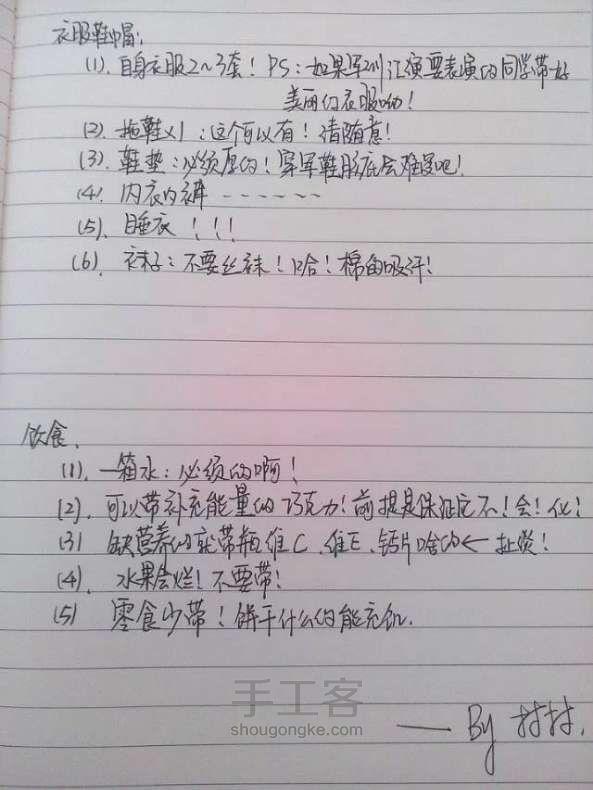 衣服鞋帽:
(1). 自身衣服2~3套! PS: 如果军训汇演要表演的同学带好
美丽的衣服呦!
(2). 拖鞋x1: 这个可以有! 请随意!
(3). 鞋垫: 必须厚的! 穿军鞋脚底会难受吧!
(4). 内衣内裤------
(5). 睡衣!!!
(6). 袜子: 不要丝袜! 哈! 棉的吸汗!
饮食.
(1). 一箱水: 必须的啊!
(2). 可以带补充能量的巧克力! 前提是保证它不!会!化!
(3) 缺营养的就带瓶维C、维E、钙片啥的← 扯淡!
(4). 水果会烂! 不要带!
(5) 零食少带! 饼干什么的能充饥.
手工客
shougongke.com
—— By 村村.